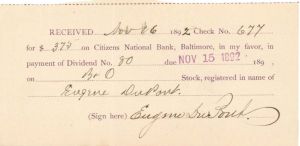 RECEIVED Nov 26 1892 Check No. 677
for $ 378 on Citizens National Bank, Baltimore, in my favor, in
payment of Dividend No. 80 due NOV 15 1892 189 ,
on B&O Stock, registered in name of
Eugene DuPont.
(Sign here) Eugene DuPont.